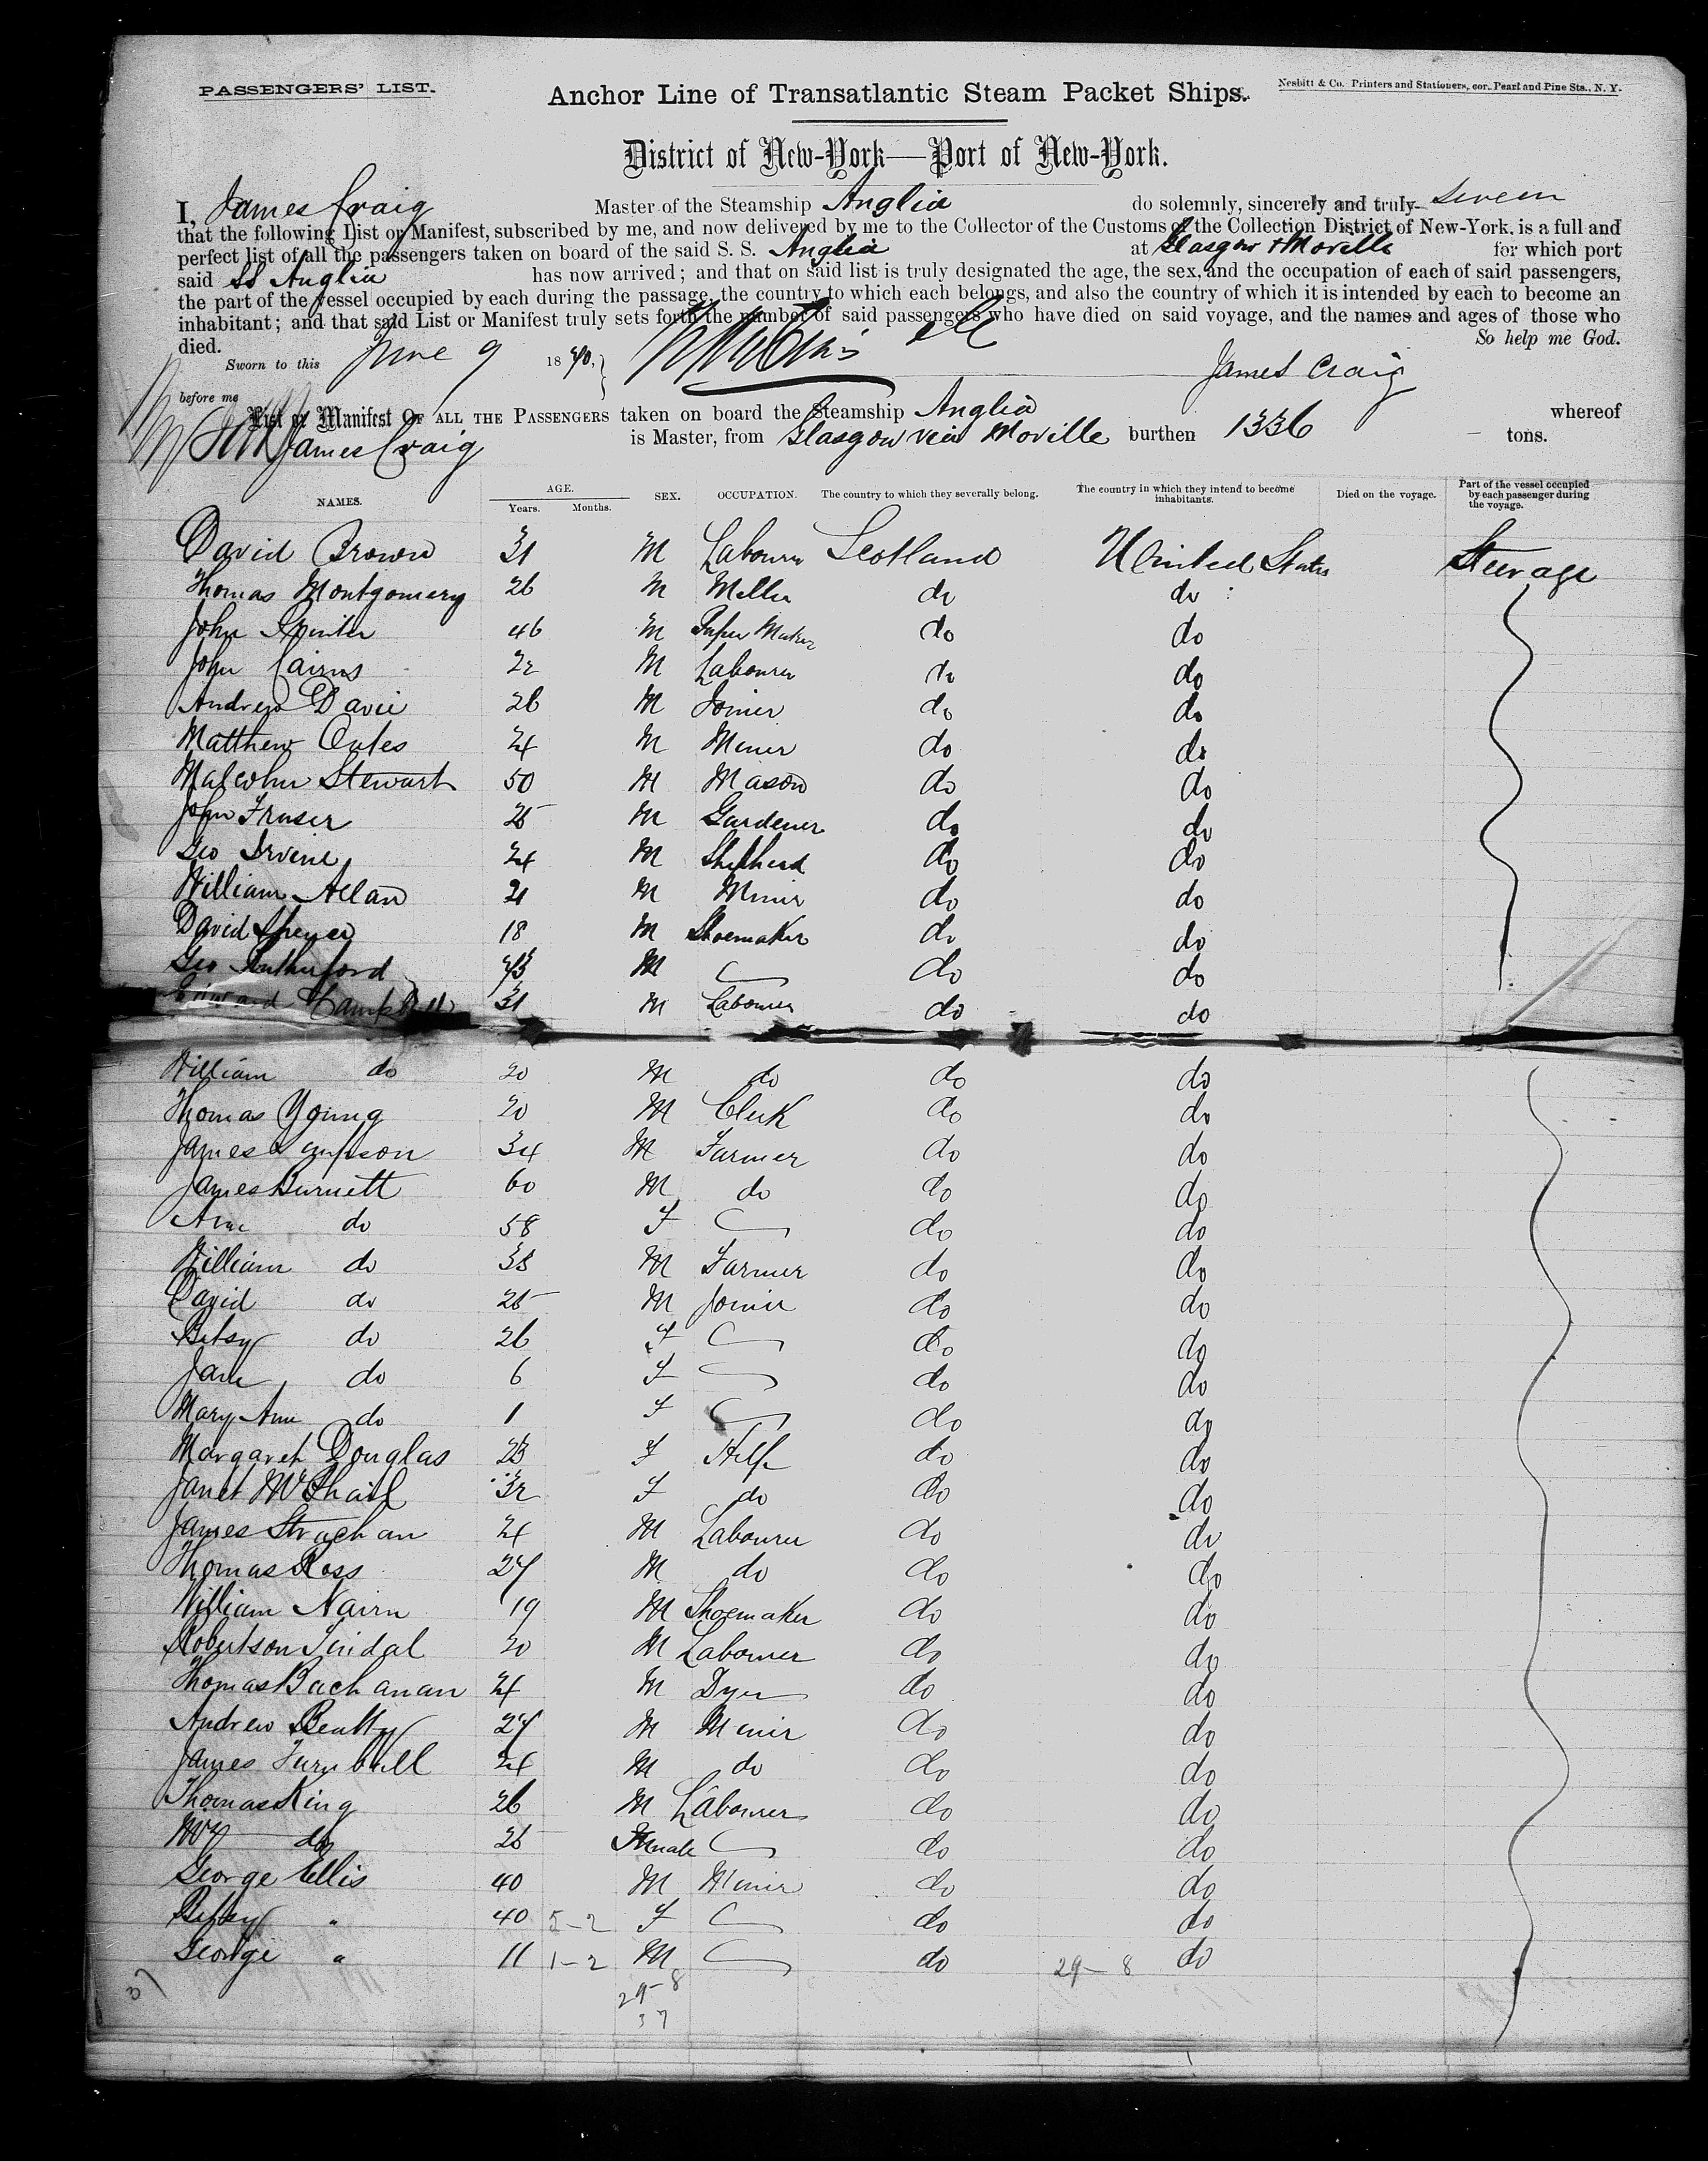 PASSENGERS' LIST.
Anchor Line of Transatlantic Steam Packet Ships.
Nesbitt & Co. Printers and Stationers, cor. Pearl and Pine Sts., N. Y.
District of New-York—Port of New-York.
I, James Craig Master of the Steamship Anglia do solemnly, sincerely and truly swear
that the following List or Manifest, subscribed by me, and now delivered by me to the Collector of the Customs of the Collection District of New-York, is a full and
perfect list of all the passengers taken on board of the said S. S. Anglia at Glasgow & Moville for which port
said SS Anglia has now arrived; and that on said list is truly designated the age, the sex, and the occupation of each of said passengers,
the part of the vessel occupied by each during the passage, the country to which each belongs, and also the country of which it is intended by each to become an
inhabitant; and that said List or Manifest truly sets forth the number of said passengers who have died on said voyage, and the names and ages of those who
died. So help me God.
Sworn to this June 9 1870, James Craig
before me
List or Manifest OF ALL THE PASSENGERS taken on board the Steamship Anglia whereof
James Craig is Master, from Glasgow via Moville burthen 1336 tons.
NAMES. AGE. Years. Months. SEX. OCCUPATION. The country to which they severally belong. The country in which they intend to become inhabitants. Died on the voyage. Part of the vessel occupied by each passenger during the voyage.
David Brown 31 M Labourer Scotland United States Steerage
Thomas Montgomery 26 M Miller do do
John 46 M Paper Maker do do
John Cairns 22 M Labourer do do
Andrew Davie 26 M Joiner do do
Matthew Oates 24 M Miner do do
Malcolm Stewart 50 M Mason do do
John Fraser 25 M Gardener do do
Geo Irvine 24 M Shepherd do do
William Allan 21 M Miner do do
David Spence 18 M Shoemaker do do
Geo Rutherford M do do
Edward Campbell 31 M Labourer do do
William do 20 M do do do
Thomas Young 20 M Clerk do do
James Simpson 34 M Farmer do do
James Burnett 60 M do do do
Ann do 58 F do do
William do 38 M Farmer do do
David do 25 M Joiner do do
Betsy do 26 F do do
Jane do 6 F do do
Mary Ann do 1 F do do
Margaret Douglas 23 F Help do do
Janet McPhail 32 F do do do
James Strachan 24 M Labourer do do
Thomas Ross 27 M do do do
William Nairn 19 M Shoemaker do do
Robertson Tindal 20 M Labourer do do
Thomas Buchanan 24 M Dyer do do
Andrew Beatty 27 M Miner do do
James Turnbull 24 M do do do
Thomas King 26 M Labourer do do
do 25 Female do do
George Ellis 40 M Miner do do
Betsy " 40 5-2 F do do
George " 11 1-2 M do 29-8 do
37 29-8
37